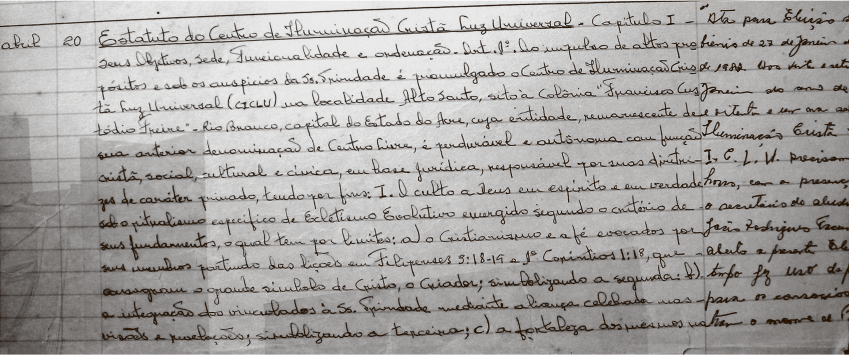 abril 20 Estatuto do Centro de Iluminação Cristã Luz Universal - Capítulo I -
seus Objetivos, sede, Funcionalidade e ordenação. Art. 1º. Ao impulso de altos pro-
pósitos e sob os auspícios da Ss. Trindade é promulgado o Centro de Iluminação Cris-
tã Luz Universal (CICLU) na localidade Alto Santo, sito à Colônia "Francisco Cus-
tódio Freire" - Rio Branco, capital do Estado do Acre, cuja entidade, remanescente de
sua anterior denominação de Centro Livre, é perdurável e autônoma com função
cristã, social, cultural e cívica, em base jurídica, responsável por suas diretri-
zes de caráter privado, tendo por fins: I. O culto a Deus em espírito e em verdade
sob o ritualismo específico de Ecletismo Evolutivo emergido segundo o critério de
seus fundamentos, o qual tem por limites: a) o Cristianismo e a fé evocados por
seus membros portando das lições em Filipenses 3:18-19 e 1º Coríntios 1:18, que
consignam o grande símbolo de Cristo, o Criador; simbolizando a segunda: b)
a integração dos vinculados à Ss. Trindade mediante aliança celebrada nas
visões e revelações; simbolizando a terceira; c) a fortaleza dos mesmos na
Ata para Eleição
biênio de 27 de Janeiro
de 1982. Aos vinte e sete
Janeiro do ano de
e oitenta e um na
Iluminação Cristã
I. C. L. U. precisam
horas, com a presença
o secretário do aludi
João Rodrigues Facun
aberto a presente Ele
tempo fez uso da
para os consócios
o nome de